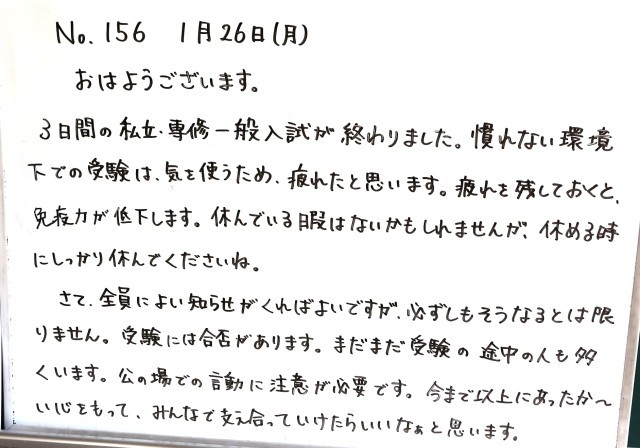 No. 156 1月26日(月)
おはようございます。
3日間の私立・専修一般入試が終わりました。慣れない環境
下での受験は、気を使うため、疲れたと思います。疲れを残しておくと、
免疫力が低下します。休んでいる暇はないかもしれませんが、休める時
にしっかり休んでくださいね。
さて、全員によい知らせがくればよいですが、必ずしもそうなるとは限
りません。受験には合否があります。まだまだ受験の途中の人も多
くいます。公の場での言動に注意が必要です。今まで以上にあったか〜
い心をもって、みんなで支え合っていけたらいいなぁと思います。